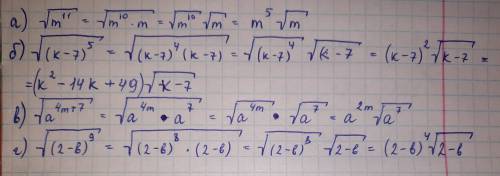 а) √(m¹¹) = √(m¹⁰ · m) = √(m¹⁰) √m = m⁵ √m
б) √((k-7)⁵) = √((k-7)⁴ (k-7)) = √((k-7)⁴) √(k-7) = (k-7)² √(k-7) =
= (k² - 14k + 49) √(k-7)
в) √(a⁴ᵐ⁺⁷) = √(a⁴ᵐ · a⁷) = √(a⁴ᵐ) · √(a⁷) = a²ᵐ √(a⁷)
г) √((2-в)⁹) = √((2-в)⁸ · (2-в)) = √((2-в)⁸) √(2-в) = (2-в)⁴ √(2-в)